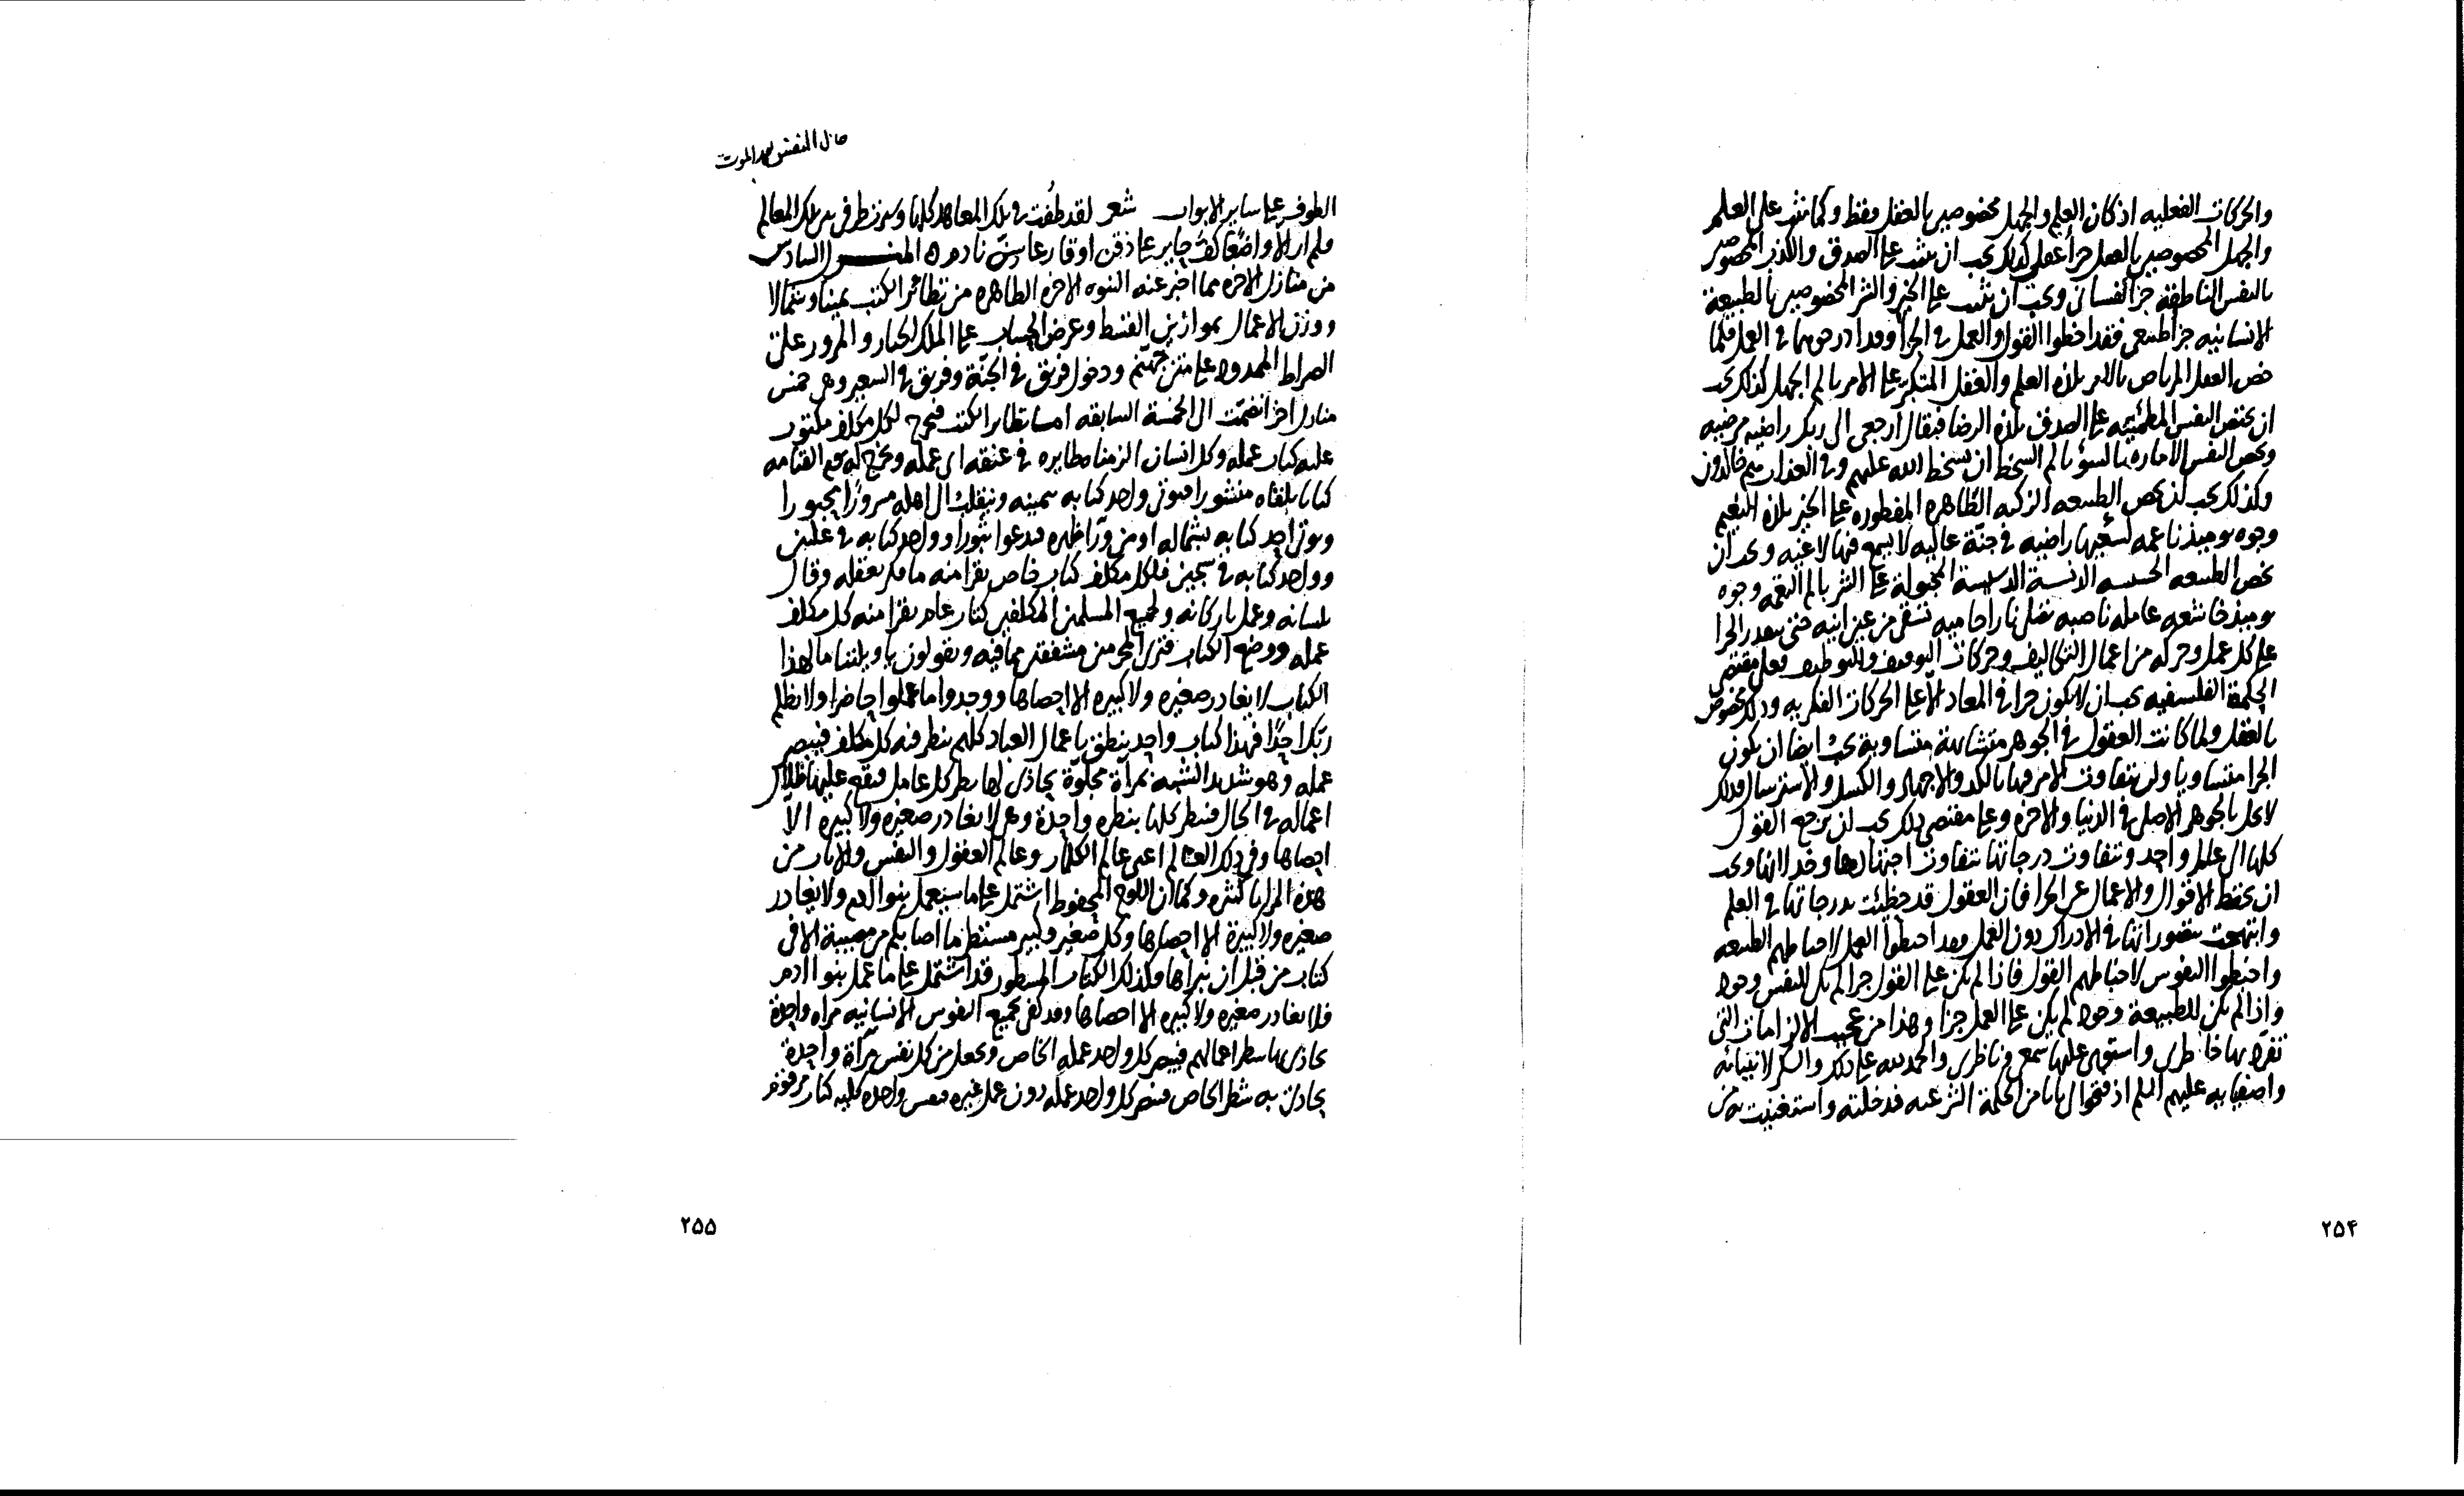 والحركات الفعليه اذ كان العلم والجهل مخصوصين بالعقل فقط وكما يثبت على العلم
والجهل المخصوصين بالعقل جزأ عقلي كذلك يجب ان يثبت على الصدق والكذب المخصوصين
بالنفس الناطقة جزا نفساني ويجب ان يثبت على الخير والشر المخصوصين بالطبيعة
الانسانيه جزأ طبيعي فقد اخطوا القول والعمل في الجزا وقد ادرجوهما في العمل فكما
خص العقل المرتاض بالامر بلذة العلم والعقل المتكبر على الامر بالم الجهل كذلك يجب
ان يختص النفس المطمئنه على الصدق بلذة الرضا فيقال ارجعي الى ربك راضيه مرضيه
ويخص النفس الاماره بالسوء بالم السخط ان سخط الله عليهم وفي العذاب هم خالدون
وكذلك يجب ان يخص الطبيعه الزكيه الطاهره المفطوره على الخير بلذة النعيم
وجوه يوميذ ناعمه لسعيها راضيه في جنة عاليه لا يسمع فيها لاغيه ويجب ان
يخص الطبيعه الخسيسه الدنسة المجبولة على الشر بالم النقمه وجوه
يوميذ خاشعه عامله ناصبه تصلى نارا حاميه تسقى من عين انيه حتى يصدر الجزا
على كل عمل وحركه من اعمال التكاليف وحركات التوقيف فعلى مقتضى
الحكمة الفلسفيه يجب ان لا يكون جزا في المعاد الا على الحركات الفكريه وذلك مخصوص
بالعقل ولما كانت العقول في الجوهر متشابهة متساوية يجب ايضا ان يكون
الجزا متساويا ولن يتفاوت الامر فيها بالكد والاجتهاد والكسل والاسترسال فذلك
لا يخل بالجوهر الاصلي في الدنيا والاخره وعلى مقتضى ذلك يجب ان يرجع العقول
كلها الى عالم واحد وتتفاوت درجاتها بتفاوت اجتهادها ويجب
ان يحتفظ الاقوال والاعمال عن الجزا فان العقول قد حظيت بدرجاتها في العلم
وابتهجت بتصوراتها في الادراك دون العمل وقد احبطوا العمل لاحباطهم الطبيعه
واحبطوا النفوس لاحباطهم القول فاذا لم يكن على القول جزا لم يكن للنفس وجود
واذا لم يكن للطبيعة وجود لم يكن على العمل جزا وهذا من عجيب الالزامات التي
تفرد بها خاطري واستوى عليها سمعي وناظري والحمد لله على ذلك والشكر لانبيائه
واصفيايه عليهم السلم اذ فتحوا لي بابا من الحكمة الشرعيه فدخلته واستغنيت به من
۲۵۴
حال النفس بعد الموت
الطوف على ساير الابواب شعر لقد طفت في تلك المعاهد كلها وسيرت طرفي بين تلك المعالم
فلم ار الا واضعا كف حاير على ذقن او قارعا سن نادم ه المنزل السادس
من منازل الاخره مما اخبر عنه النبوه الاخره الطاهره من تطائر الكتب يمينا وشمالا
ووزن الاعمال بموازين القسط وعرض الحساب على الملك الجبار والمرور على
الصراط الممدود على متن جهنم ودخول فريق في الجنة وفريق في السعير وهي خمس
منازل اخر انضمت الى الخمسة السابقه اما تطاير الكتب فيخرج لكل مكلف مكتوب
عليه كتاب عمله وكل انسان الزمناه طايره في عنقه اي عمله ويخرج له يوم القيامه
كتابا يلقاه منشورا فيوتى واحد كتابه بيمينه وينقلب الى اهله مسرورا محبورا
ويوتى احد كتابه بشماله او من ورا ظهره فيدعوا ثبورا وواحد كتابه في عليين
وواحد كتابه في سجين فلكل مكلف كتاب خاص يقرا منه ما فكر بعقله وقال
بلسانه وعمل باركانه ولجميع المسلمين المكلفين كتاب عام يقرا منه كل مكلف
عمله ووضع الكتاب فترى المجرمين مشفقين مما فيه ويقولون يا ويلتنا مال هذا
الكتاب لا يغادر صغيره ولا كبيره الا احصاها ووجدوا ما عملوا حاضرا ولا يظلم
ربك احدا فهذا كتاب واحد ينطق باعمال العباد كلهم ينظر فيه كل مكلف فيبصر
عمله وهو شديد الشبه بمرآة مجلوة يحاذى بها سطر كل عامل فيقع عليها ظلال
اعماله في الحال فينظر كلها بنظره واحدة وهي لا تغادر صغيره ولا كبيره الا
احصاها وفي ذلك العالم اعني عالم الكلمات وعالم العقول والنفس والامثال من
هذه المرايا كثيره وكما ان اللوح المحفوظ اشتمل على ما سيعمل بنوا آدم ولا يغادر
صغيره ولا كبيرة الا احصاها وكل صغير وكبير مستطر ما اصابكم من مصيبة الا في
كتاب من قبل ان نبراها وكذلك الكتاب المسطور قد اشتمل على ما عمل بنوا ادم
فلا يغادر صغيره ولا كبيره الا احصاها وقد يكفى لجميع النفوس الانسانيه مرآه واحدة
يحاذى بها سطر اعمالهم فيبصر كل واحد عمله الخاص ويجعل من كل نفس مرآة واحدة
يحاذى به شطر الخاص فيبصر كل واحد عمله دون عمل غيره فنفس واحده كليه كتاب مرقوم
۲۵۵